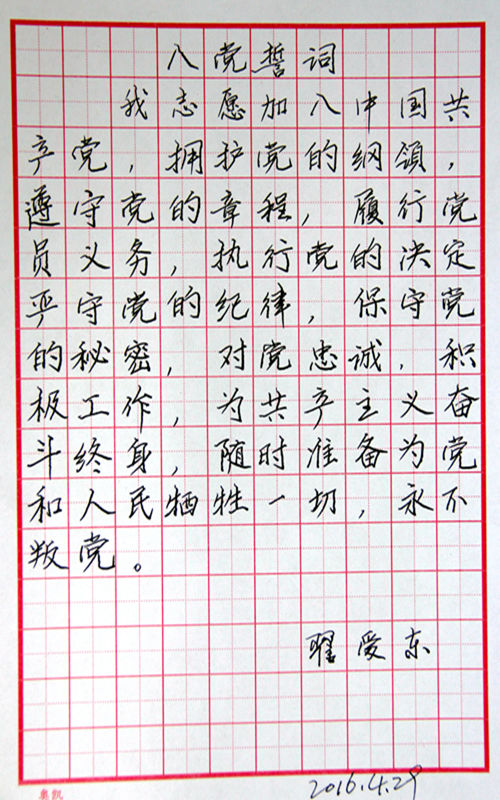 入党誓词
我志愿加入中国共
产党，拥护党的纲领，
遵守党的章程，履行党
员义务，执行党的决定
严守党的纪律，保守党
的秘密，对党忠诚，积
极工作，为共产主义奋
斗终身，随时准备为党
和人民牺牲一切，永不
叛党。
翟爱东
2016.4.29
奥凯